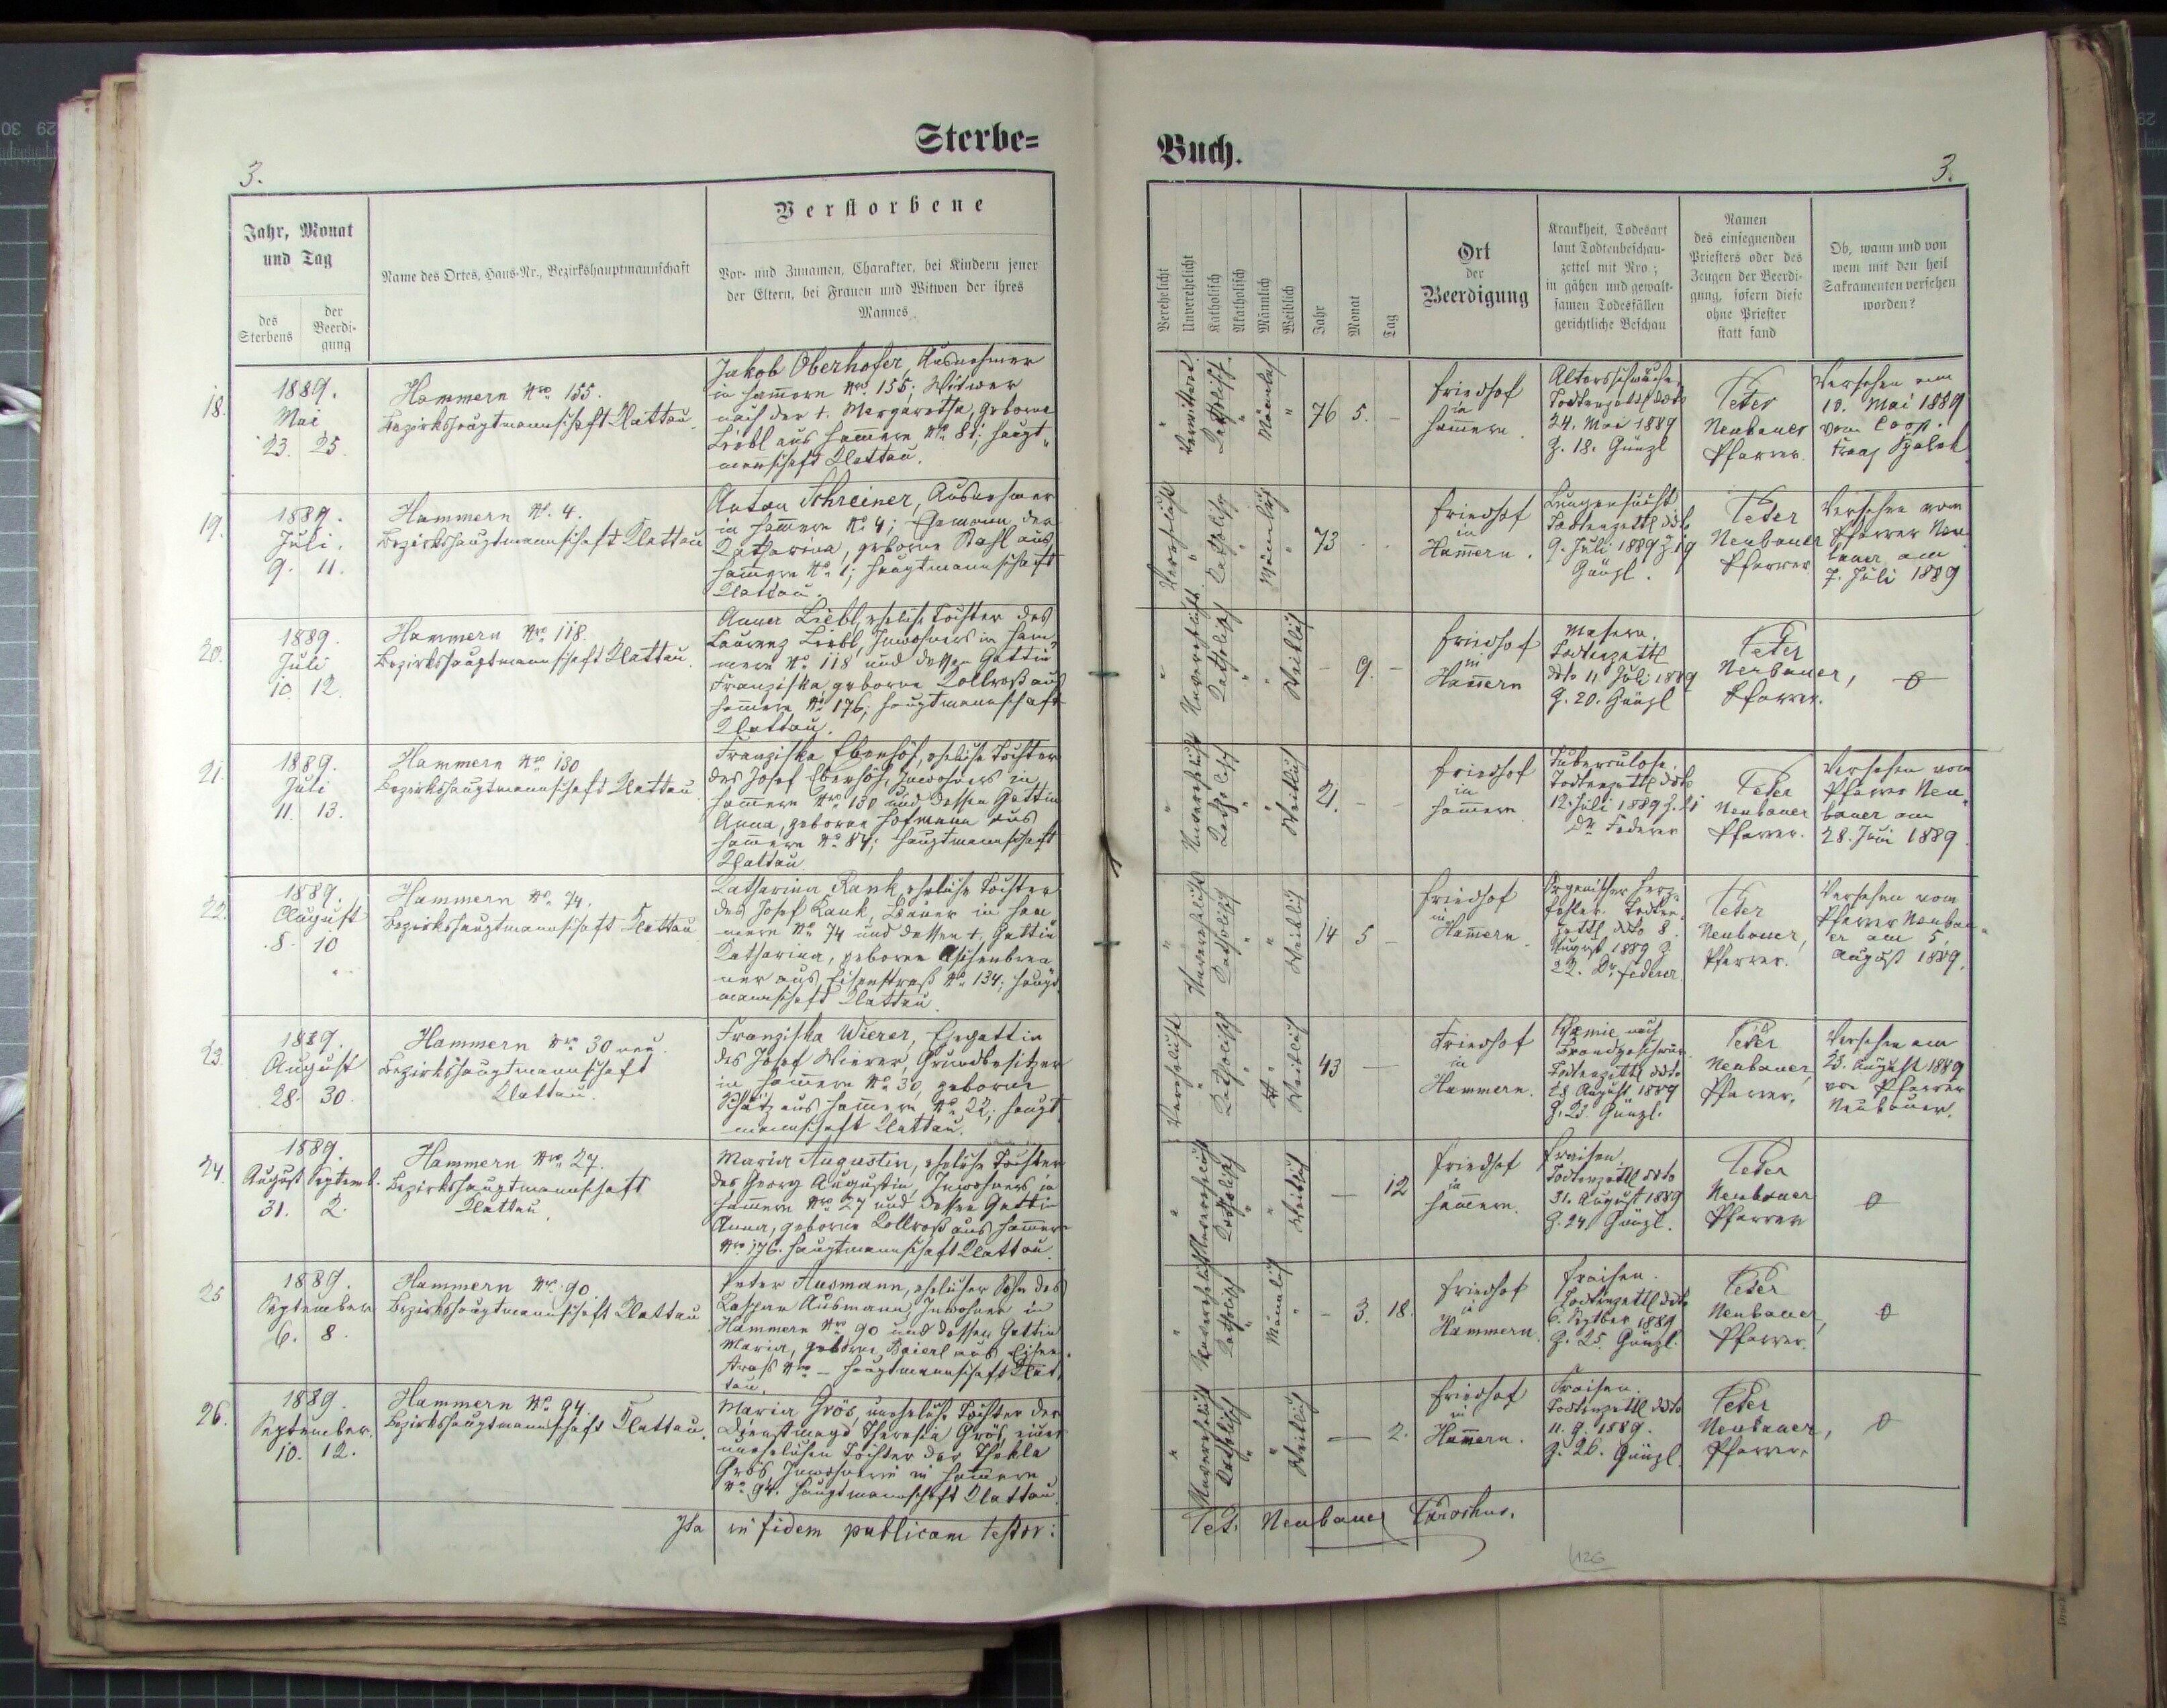 Sterbe=
3.
Jahr, Monat
und Tag
des
Sterbens
der
Beerdi-
gung
Name des Ortes, Haus-Nr., Bezirkshauptmannschaft
Verstorbene
Vor- und Zunamen, Charakter, bei Kindern jener
der Eltern, bei Frauen und Witwen der ihres
Mannes.
18.
1889.
Mai
23. 25.
Hammern Nro 155.
Bezirkshauptmannschaft Klattau.
Jakob Oberhofer, Ausnehmer
in Hammern Nro 155; Witwer
nach der †. Margaretha, geborne
Liebl aus Hammern No 81; Haupt-
mannschaft Klattau.
19.
1889.
Juli.
9. 11.
Hammern No. 4.
Bezirkshauptmannschaft Klattau
Anton Schreiner, Ausnehmer
in Hammern No 4; Ehemann der
Katharina, geborne Kahl aus
Hammern No 1; Hauptmannschaft
Klattau.
20.
1889.
Juli
10. 12.
Hammern Nro 118.
Bezirkshauptmannschaft Klattau.
Anna Liebl, eheliche Tochter des
Laurenz Liebl, Inwohners in Ham-
mern No 118 und dessen Gattin
Franziska, geborne Kollroß aus
Hammern No 176; Hauptmannschaft
Klattau.
21.
1889.
Juli
11. 13.
Hammern Nro 130
Bezirkshauptmannschaft Klattau
Franziska Eberhöf, eheliche Tochter
des Josef Eberhöf, Inwohners in
Hammern Nro 130 und dessen Gattin
Anna, geborne Hofmann aus
Hammern No 84; Hauptmannschaft
Klattau.
22.
1889.
August
8. 10
Hammern No 74.
Bezirkshauptmannschaft Klattau
Katharina Rank, eheliche Tochter
des Josef Rank, Bauer in Ham-
mern No 74 und dessen †. Gattin
Katharina, geborne Aschenbren
ner aus Eisenstraß No 134; Haupt-
mannschaft Klattau
23.
1889.
August
28. 30.
Hammern Nro 30 neu.
Bezirkshauptmannschaft
Klattau.
Franziska Wierer, Ehegattin
des Josef Wierer, Grundbesitzer
in Hammern No 30, geborne
aus Hammern No 22; Haupt-
mannschaft Klattau.
24.
1889.
August Septemb.
31. 2.
Hammern Nro 27.
Bezirkshauptmannschaft
Klattau.
Maria Augustin, eheliche Tochter
des Georg Augustin, Inwohners in
Hammern Nro 27 und dessen Gattin
Anna, geborne Kollroß aus Hammern
Nro 176. Hauptmannschaft Klattau.
25
1889.
September
6. 8.
Hammern Nro 90
Bezirkshauptmannschaft Klattau
Peter Ausmann, ehelicher Sohn des
Kaspar Ausmann, Inwohner in
Hammern Nro 90 und dessen Gattin
Maria, geborne Baierl aus Eisen-
straß Nro – Hauptmannschaft Klat-
tau.
26.
1889.
September.
10. 12.
Hammern No 94.
Bezirkshauptmannschaft Klattau.
Maria Grös, uneheliche Tochter der
Dienstmagd Theresia Grös, einer
unehelichen Tochter der Thekla
Grös, Inwohnerin in Hammern
No 94. Hauptmannschaft Klattau.
Ita in fidem publicam testor:
Buch.
3.
Verehelicht
Unverehelicht
Katholisch
Akatholisch
Männlich
Weiblich
Jahr
Monat
Tag
Ort
der
Beerdigung
Krankheit, Todesart
laut Todtenbeschau-
zettel mit Nro ;
in gähen und gewalt-
samen Todesfällen
gerichtliche Beschau
Namen
des einsegnenden
Priesters oder des
Zeugen der Beerdi-
gung, sofern diese
ohne Priester
statt fand
Ob, wann und von
wem mit den heil
Sakramenten versehen
worden?
" Verwitwet. Katholisch " Männlich "
76 5. –
Friedhof
in
Hammern.
Altersschwäche.
Todtenzettl ddto
24. Mai 1889
Z. 18. Günzl
Peter
Neubauer
Pfarrer.
Versehen am
10. Mai 1889
vom Coop.
Franz
Verehelicht " Katholisch " Männlich "
73 – –
Friedhof
in
Hammern.
Lungensucht
Todtenzettl ddto
9. Juli 1889 Z. 19
Günzl.
Peter
Neubauer
Pfarrer
Versehen vom
Pfarrer Neu-
bauer am
7. Juli 1889
" Unverehelicht Katholisch " " Weiblich
– 9. –
Friedhof
in
Hammern
Masern.
Todtenzettl
ddto 11 Juli 1889
Z. 20. Günzl
Peter
Neubauer,
Pfarrer.
0
" Unverehelicht Katholisch " " Weiblich
21. – –
Friedhof
in
Hammern.
Tuberculose.
Todtenzettl ddto
12. Juli 1889 Z. 21
Dr Federer
Peter
Neubauer
Pfarrer.
Versehen vom
Pfarrer Neu-
bauer am
28. Juni 1889.
" Unverehelicht Katholisch " " Weiblich
14 5 –
Friedhof
in
Hammern.
Organischer Herz-
fehler. Todten-
zettl ddto 8.
August 1889 Z
22. Dr. Federer.
Peter
Neubauer,
Pfarrer.
Versehen vom
Pfarrer Neubau-
er am 5.
August 1889.
Verehelicht " Katholisch " " Weiblich
43 –
Friedhof
in
Hammern.
nach
Todtenzettl ddto
28 August 1889
Z. 23 Günzl.
Peter
Neubauer,
Pfarrer.
Versehen am
25. August 1889
von Pfarrer
Neubauer.
" Unverehelicht Katholisch " " Weiblich
– 12
Friedhof
in
Hammern.
Fraisen.
Todtenzettl ddto
31. August 1889
Z. 24 Günzl.
Peter
Neubauer
Pfarrer
0
" Unverehelicht Katholisch " Männlich "
– 3. 18.
Friedhof
in
Hammern.
Fraisen.
Todtenzettl ddto
6. Septber 1889
Z. 25. Günzl.
Peter
Neubauer,
Pfarrer.
0
" Unverehelicht Katholisch " " Weiblich
– 2.
Friedhof
in
Hammern.
Fraisen.
Todtenzettl ddto
11. 9. 1889.
Z. 26. Günzl
Peter
Neubauer,
Pfarrer.
0
Pet. Neubauer Parochus.
126